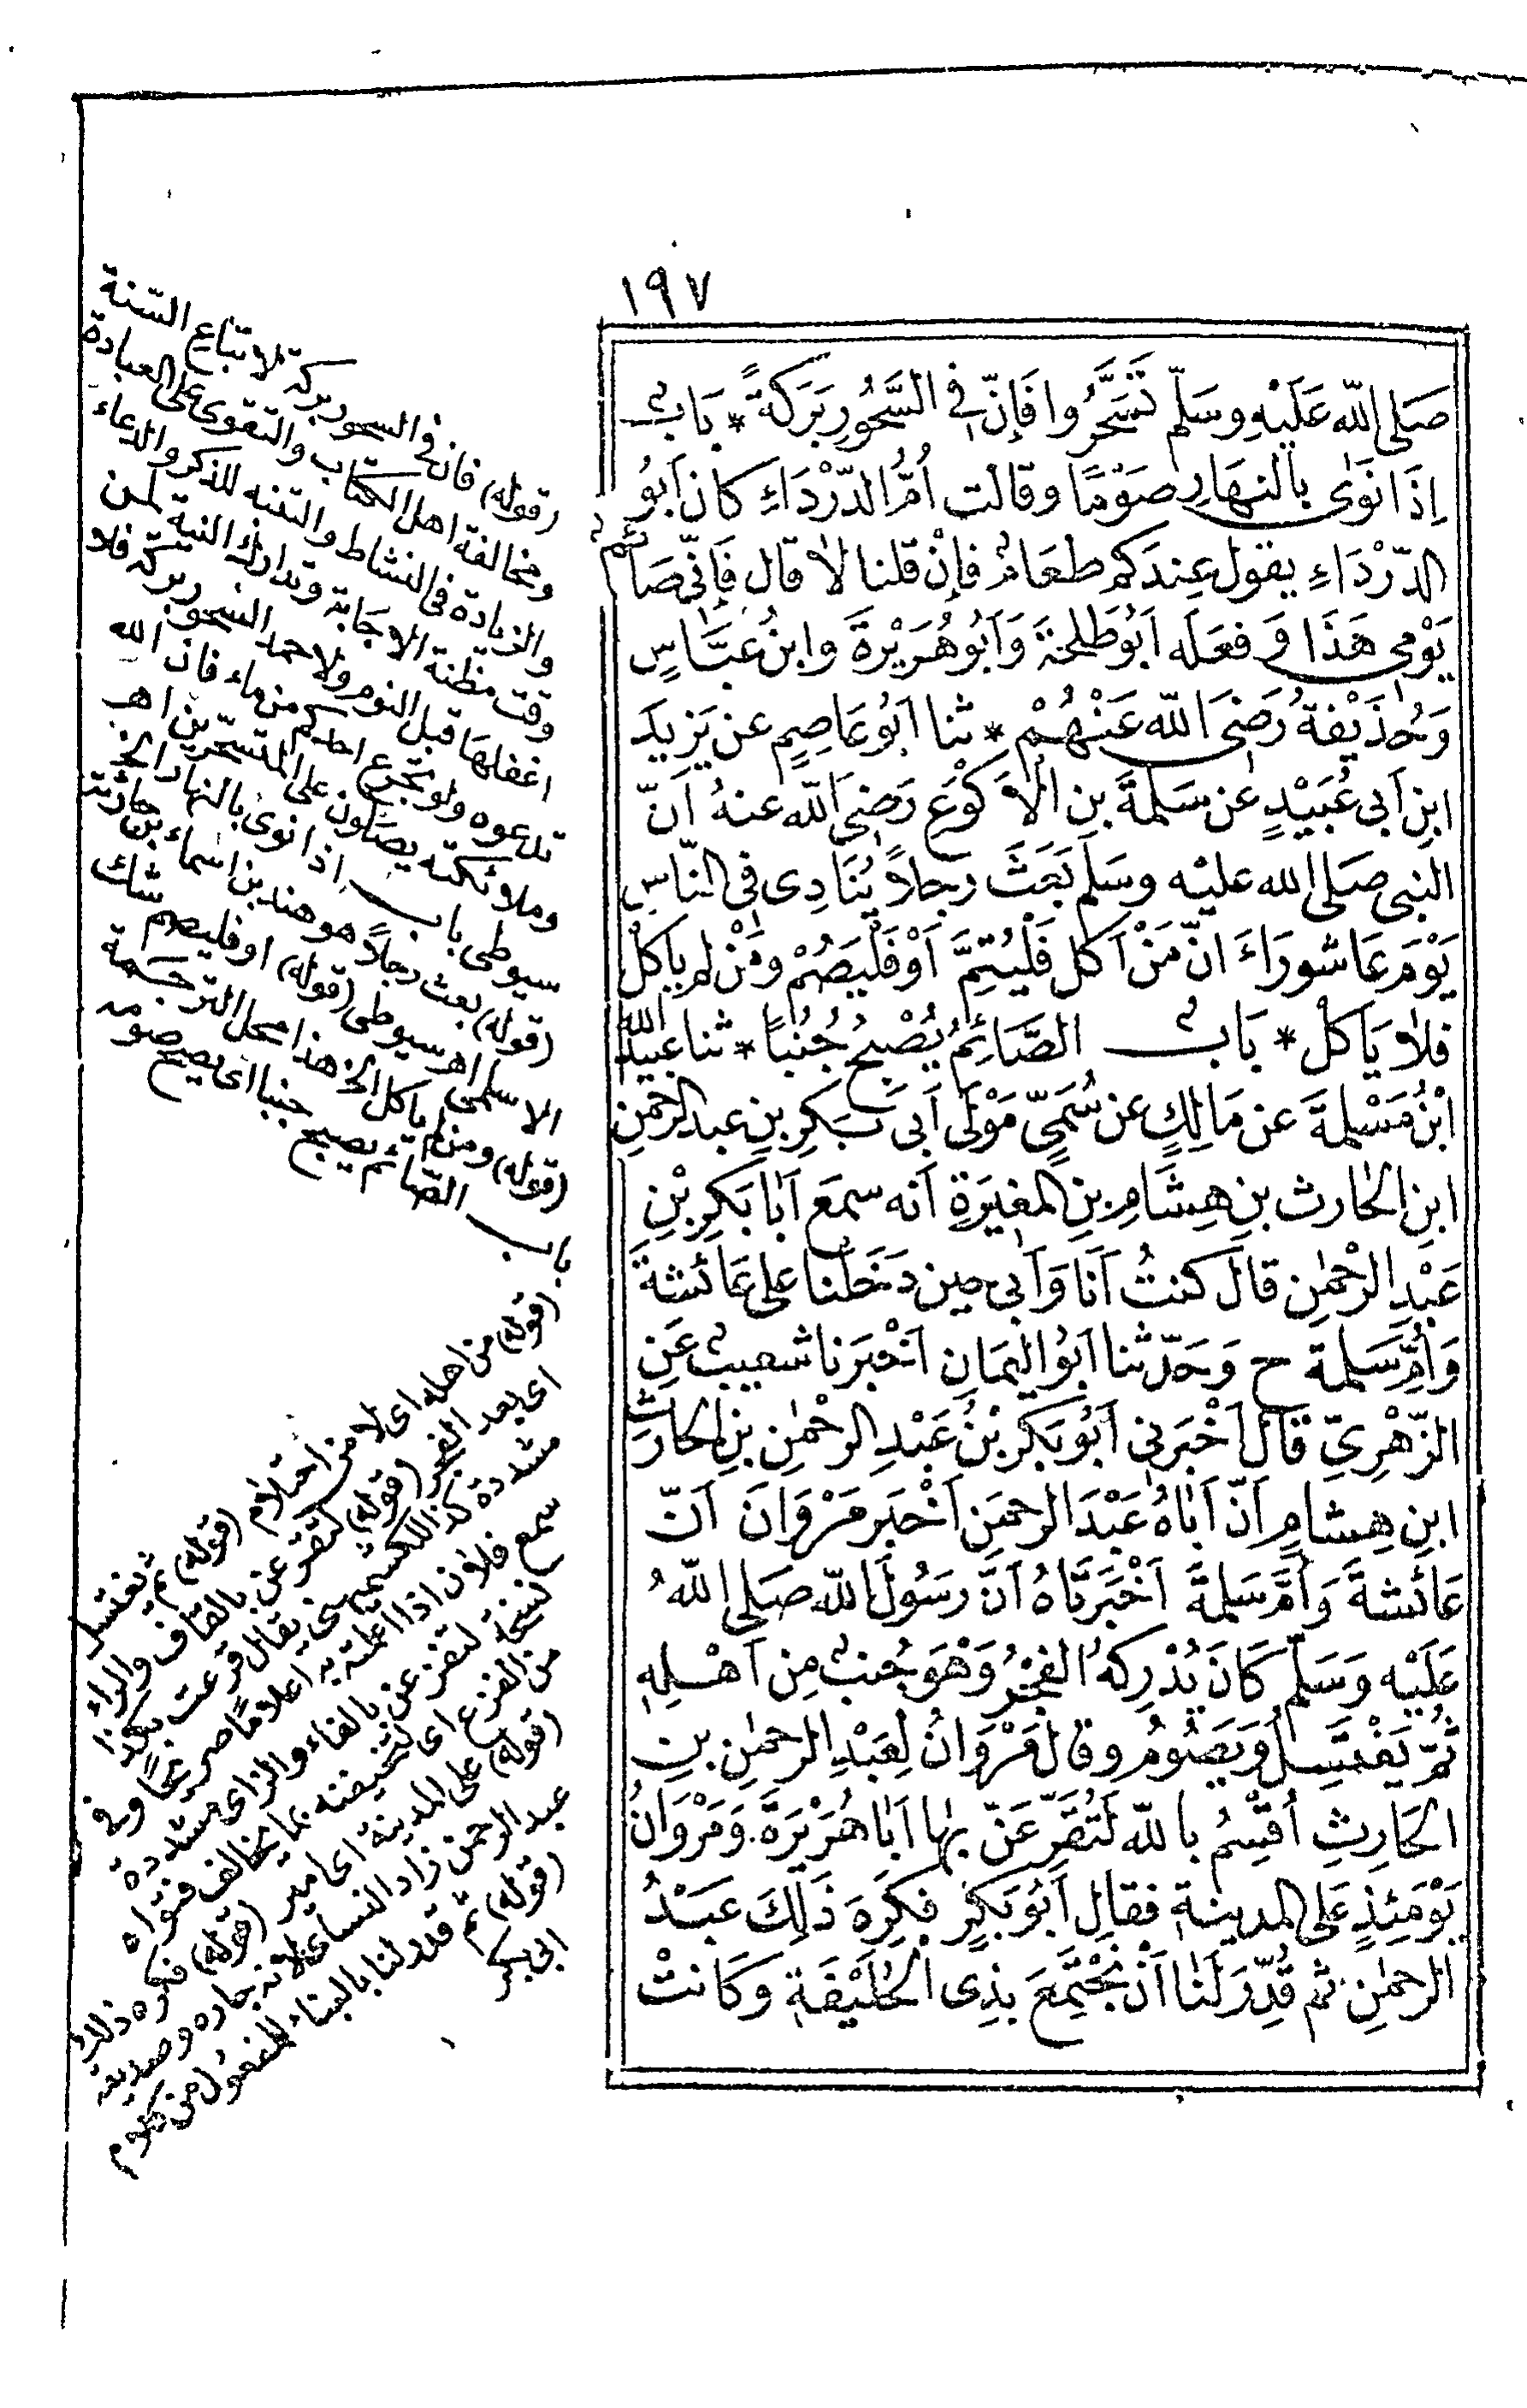 ١٩٧
صَلى الله عَلَيْهِ وسَلّم تَسَحَّرُوا فَاِنّ فِى السَّحُورِ بَرَكَةً * بَابٌ
اِذَا نَوٰى بالنهَارِ صَوْمًا وقالت اُمُّ الدّرْدَاءِ كان اَبُو
الدّرْدَاءِ يقول عِندَكم طعَامٌ فاِنْ قلنا لا قال فَاِنِّى صَائمٌ
يَوْمِى هَذَا وَفعَلَه اَبُو طَلحَةَ وَاَبُو هُرَيْرَةَ وابنُ عَبَّاسٍ
وَحُذَيْفَةُ رَضِىَ الله عَنْهُمْ * ثنا اَبُو عَاصِمٍ عن يَزِيدَ
ابنِ اَبى عُبَيْدٍ عن سَلمةَ بنِ الاَكوَعِ رَضِىَ الله عنهُ اَنّ
النبى صَلى الله عليْه وسَلم بَعَثَ رَجلاً يُنَادِى فى النّاسِ
يَوْمَ عَاشورَاءَ انّ مَنْ اَكل فَلْيُتِمَّ اَوْ فَلْيَصُمْ وَمَنْ لم ياكلْ
فلا يَاكلْ * بَابٌ الصَّائِمُ يُصْبِحُ جُنُبًا * ثنا عبدُ الله
ابْنُ مَسْلمةَ عن مَالِكٍ عن سُمَىٍّ مَوْلَى اَبى بَكرِ بنِ عبد الرحمنِ
ابنِ الحارث بنِ هِشَامِ بنِ المغِيرَةِ اَنه سمعَ اَبا بَكرِ بْنِ
عَبْدِ الرحْمٰنِ قالَ كنتُ اَنَا وَاَبى حِين دَخَلنا على عَائشةَ
وَاُمِّ سَلمة ح وَحَدّثنا اَبُو اليَمَانِ اَخْبَرنا شعيبٌ عَنِ
الزّهْرِىِّ قالَ اَخْبَرَنى اَبُو بَكرِ بْنُ عَبْدِ الرحْمٰنِ بنِ الحارثِ
ابنِ هِشامٍ اَنّ اَبَاهُ عَبْدَ الرحمنِ اَخْبَر مَرْوَانَ اَنّ
عَائشةَ وَاُمَّ سَلمةَ اَخْبَرَتَاهُ اَنَّ رَسُولَ الله صَلى اللهُ
عَلَيْه وَسَلّم كَانَ يُدْرِكهُ الفجْرُ وَهْوَ جُنبٌ مِن اَهْلِهِ
ثمّ يَغْتَسِلُ وَيَصُومُ وقال مَرْوَانُ لِعَبْدِ الرحمٰنِ بنِ
الحَارِثِ اُقْسِمُ بالله لَتُقَرِّعَنّ بها اَبَا هُرَيْرَةَ. وَمَرْوَانُ
يَوْمَئِذٍ عَلى المدينةِ فقال اَبُو بَكرٍ فكَرِهَ ذَلِكَ عَبْدُ
الرحمٰنِ ثم قُدِّرَ لَنَا اَنْ نَجْتَمِعَ بذِى الحُلَيْفَةِ وَكَانتْ
(قوله) فان فى السحور بركة لاتباع السّنة
ومخالفة اهل الكتاب والتقوى على العبادة
والزيادة فى النشاط والتنبه للذكر والدعاء
وقت مظنة الاجابة وتدارك النية لمن
اغفلها قبل النوم ولاحمد السحور بركة فلا
تدعوه ولو بتجرع احدكم من ماء فان الله
وملائكته يصلون على المتسحرين اهـ
سيوطى باب اذا نوى بالنهار الخ
(قوله) بعث رجلاً هو هند بن اسماء بن حارثة
الاسلمى اهـ سيوطى (قوله) او فليصم شك
(قوله) ومن لم ياكل الخ هذا محل الترجمة
باب الصّائم يصبح جنبا اى يصح صومه
(قوله) من اهله اى لا من احتلام (قوله) ثم يغتسل
اى بعد الفجر (قوله) لتقرعن بالقاف والراء
مشددة كذا للكشميهنى يقال قرعت بكذا
سمع فلان اذا اعلمته به اعلاما صريحا وفى
نسخة لتفزعن بالفاء والزاى مشددة
من الفزع اى لتخيفنه بما يخالف فتواه
(قوله) على المدينة اى امير (قوله) فكره ذلك
عبد الرحمن زاد النساى لانه جاره وصديقه
(قوله) ثم قدر لنا بالبناء للمفعول من كلام
ابى بكر